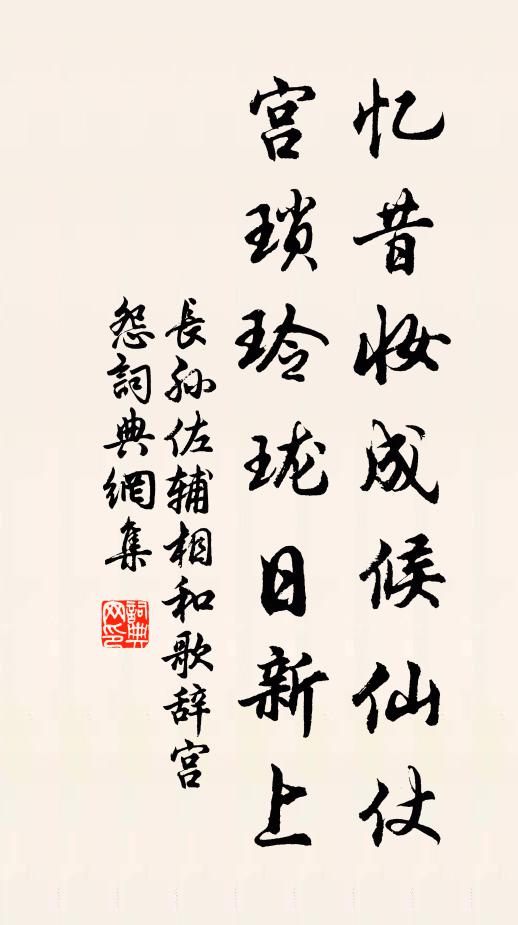 忆昔妆成候仙仗
宫琐玲珑日新上
長孙佐辅相和歌辞宫
怨詞典網集
詞典网印